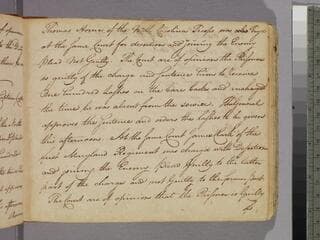 Thomas Hornes of the North Carolina Troops was
at the same Court for desertion and joining the Enemy
Plead Not Guilty. The Court are of opinion the Prisoner
is guilty of the charge and Sentence him to receive
One hundred Lashes on his bare back and
the time he was absent from the service. The General
approves the Sentence and orders the lashes to be given
this afternoon. At the same Court James of the
first Maryland Regiment was charged with Desertion
and joining the Enemy Plead Guilty to the latter
part of the charge and not Guilty to the former part
The Court are of opinion that the Prisoner is Guilty